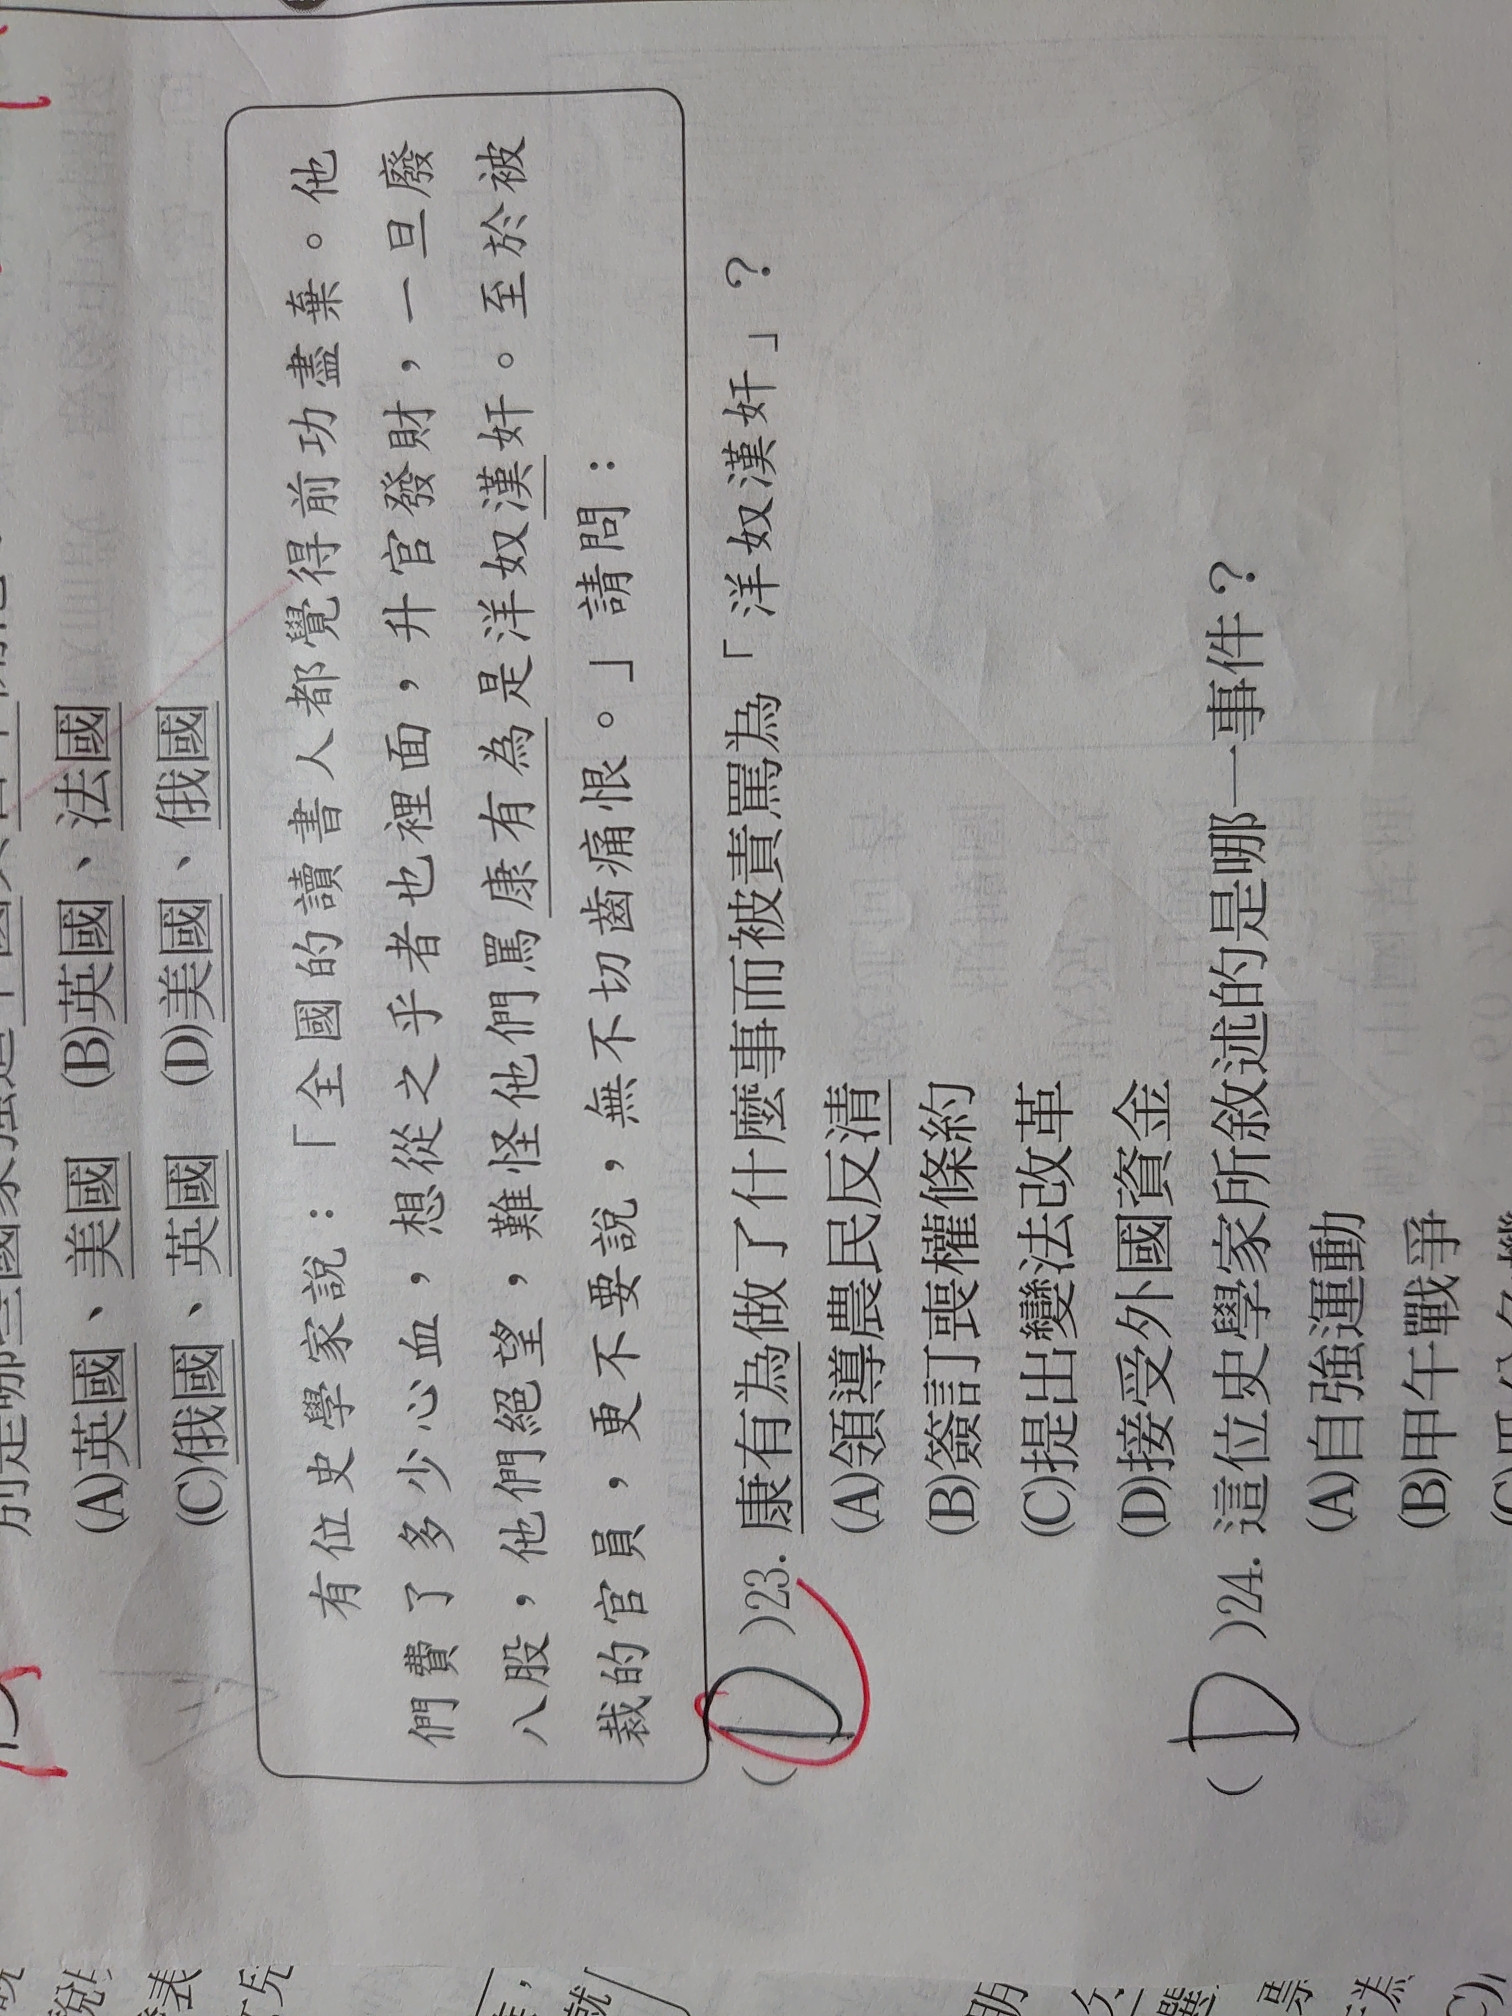 (A)英國、美國　(B)英國、法國
(C)俄國、英國　(D)美國、俄國
有位史學家說：「全國的讀書人都覺得前功盡棄。他
們費了多少心血，想從之乎者也裡面，升官發財，一旦廢
八股，他們絕望，難怪他們罵康有為是洋奴漢奸。至於被
裁的官員，更不要說，無不切齒痛恨。」請問：
(D)23. 康有為做了什麼事而被責罵為「洋奴漢奸」？
(A)領導農民反清
(B)簽訂喪權條約
(C)提出變法改革
(D)接受外國資金
(D)24. 這位史學家所敘述的是哪一事件？
(A)自強運動
(B)甲午戰爭